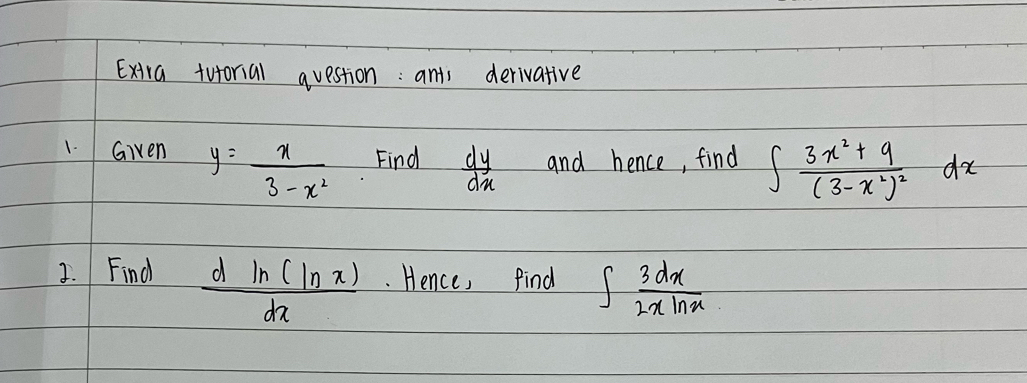 Extra tutorial question : anti derivative
1. Given y = x / (3 - x²) . Find dy/dx and hence, find ∫ (3x² + 9) / (3 - x²)² dx
2. Find d ln (ln x) / dx . Hence, find ∫ 3dx / (2x ln x) .